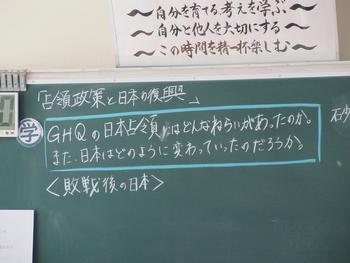 〜自分を育てる考えを学ぶ〜
〜自分と他人を大切にする〜
〜この時間を精一杯楽しむ〜
「占領政策と日本の復興」
学
GHQの日本占領にはどんなねらいがあったのか。
また、日本はどのように変わっていったのだろうか。
＜敗戦後の日本＞